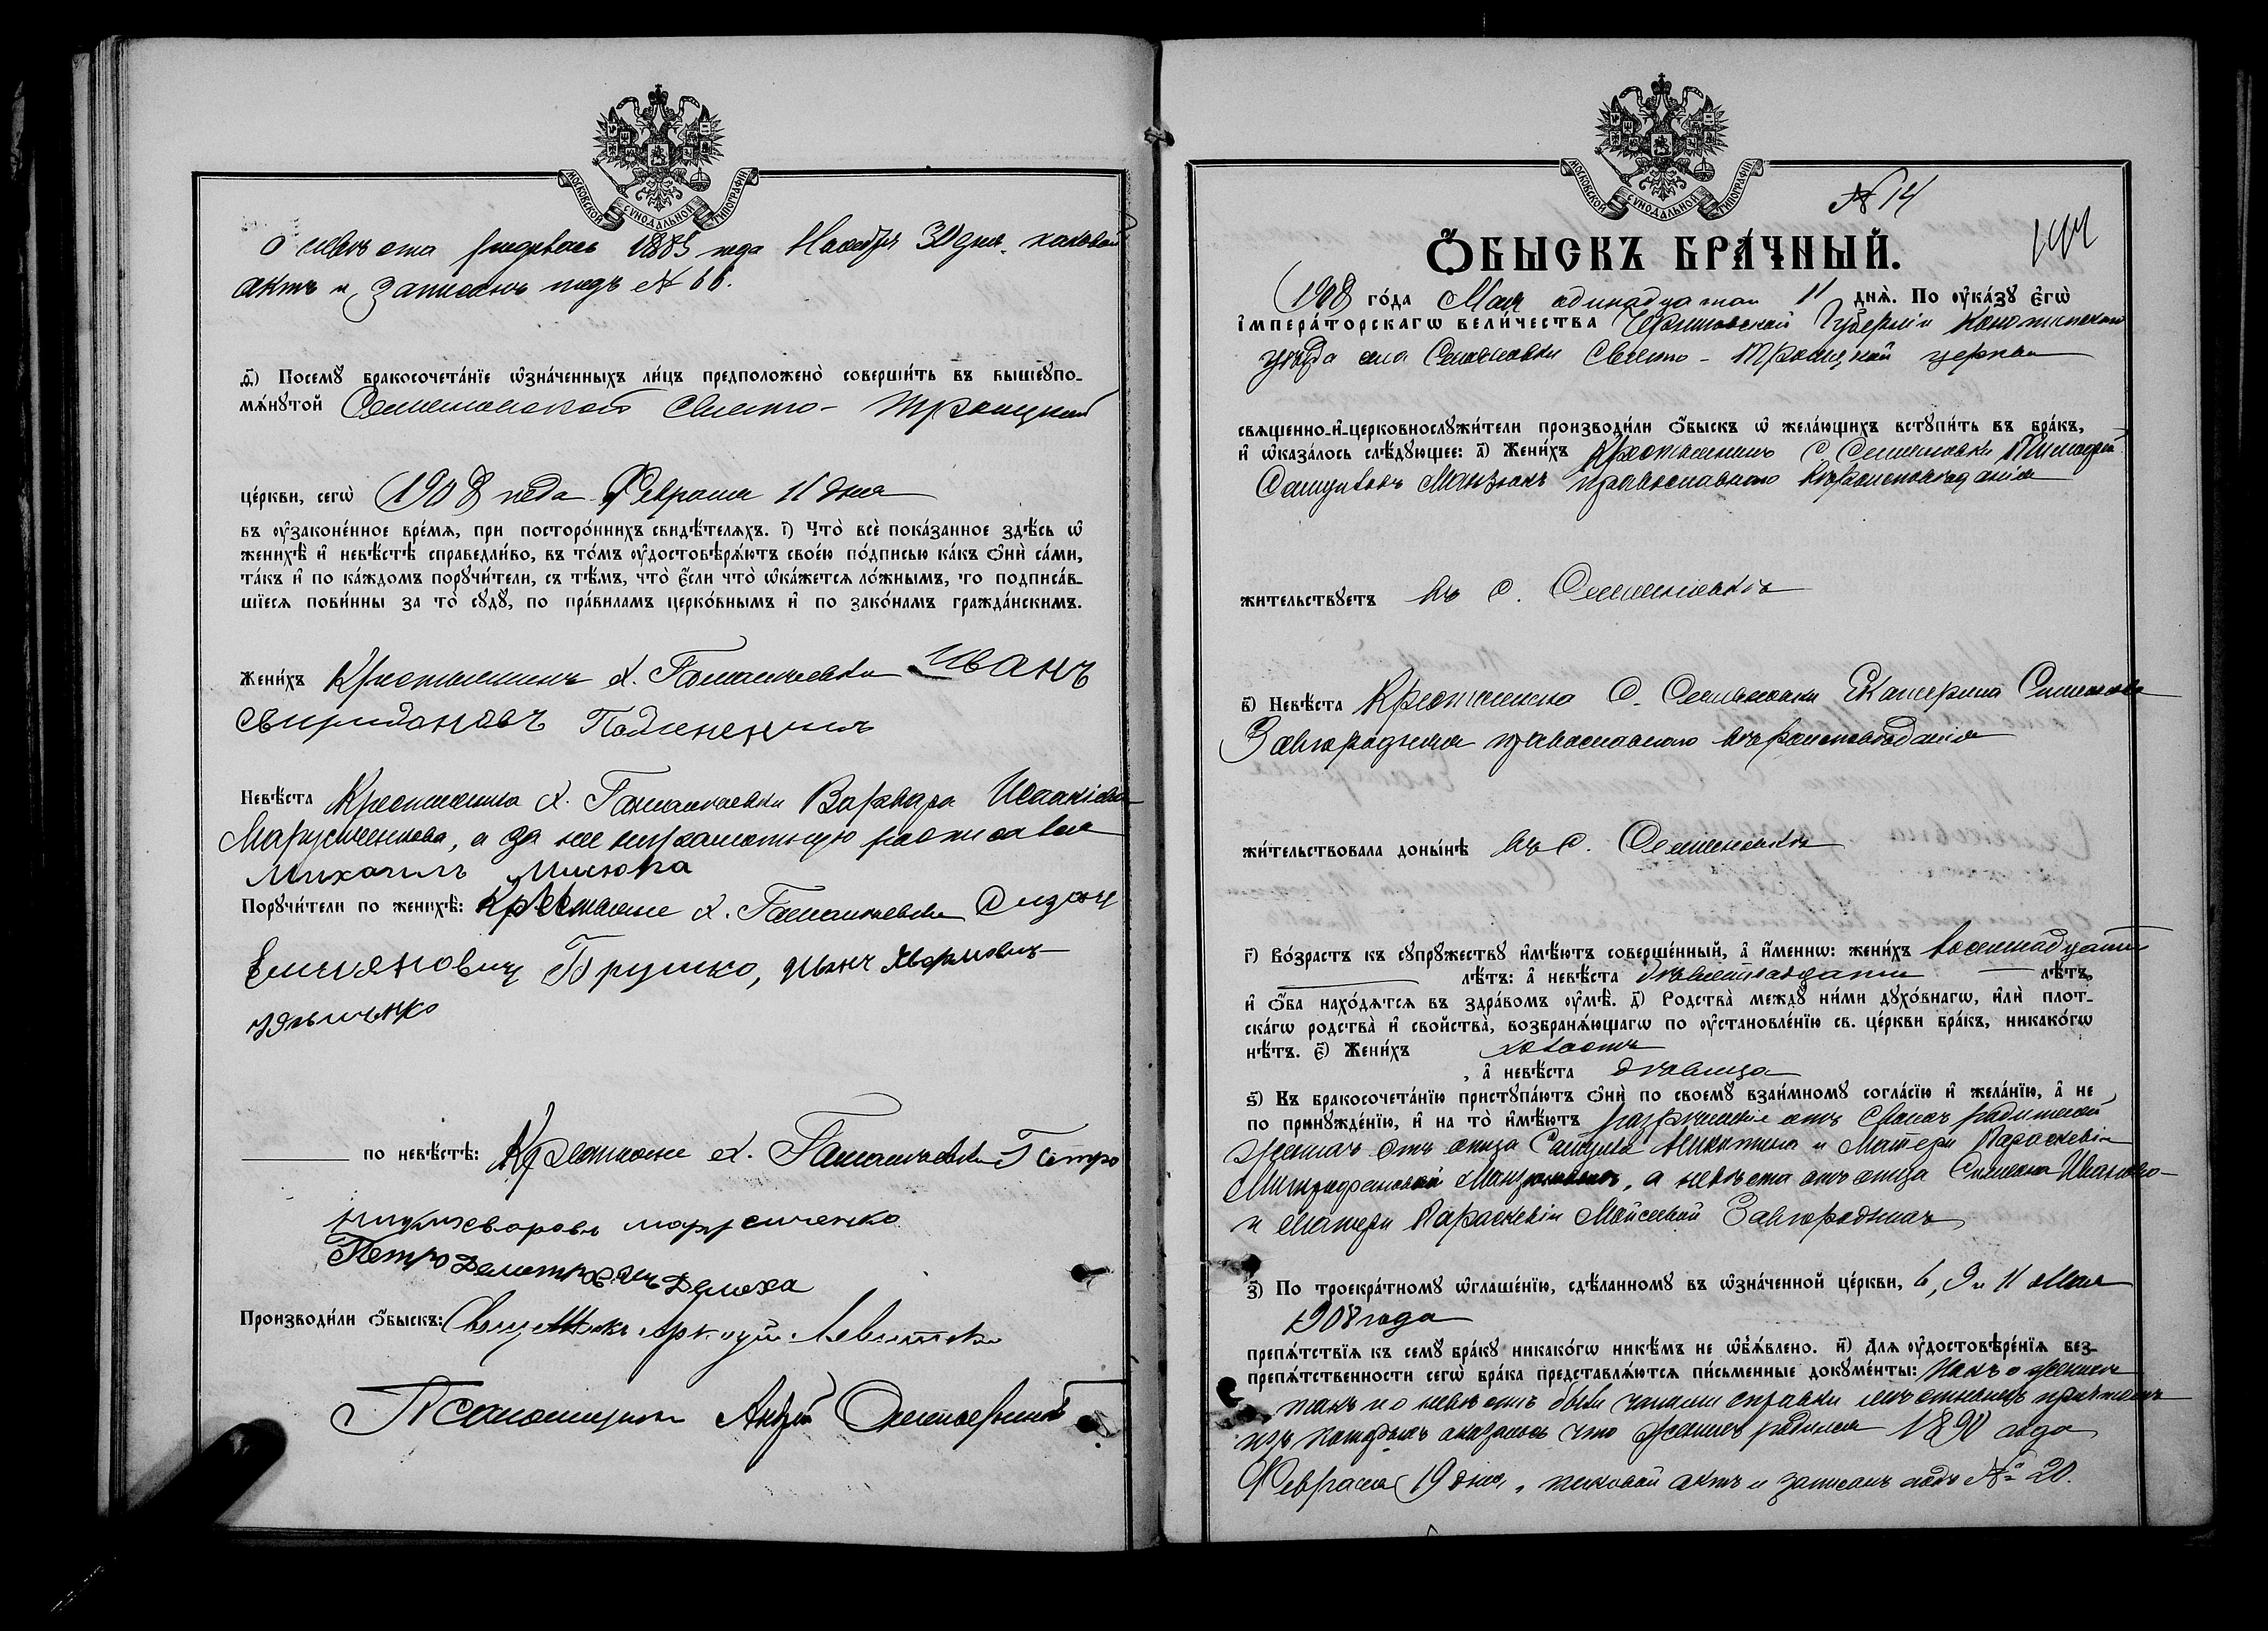 МОСКОВСКОЙ СѴНОДАЛЬНОЙ ТИПОГРАФІИ
а невѣста родилась 1885 года Ноября 30 дня. каковой
актъ и записанъ подъ № 66.
ѳ҃) Посемꙋ̀ бракосочета́нїе ѡ҆зна́ченныхъ ли́цъ предположено̀ соверши́ть въ вышеꙋпо-
мѧ́нꙋтой Семеновской Свято-Троицкой
це́ркви, сегѡ̀ 1908 года Февраля 11 дня
въ ᲂу҆законе́нное вре́мѧ, при посторо́ннихъ свидѣ́телѧхъ. і҃) Что̀ всѐ пока́занное здѣ́сь ѡ҆
женихѣ̀ и҆ невѣ́стѣ справедли́во, въ то́мъ ᲂу҆достовѣрѧ́ютъ свое́ю по́дписью ка́къ ѻ҆нѝ са́ми,
та́къ и҆ по ка́ждомъ порꙋчи́тели, съ тѣ́мъ, что̀ є҆́сли что̀ ѡ҆ка́жетсѧ ло́жнымъ, то подписа́в-
шїесѧ пови́нны за то̀ сꙋдꙋ̀, по пра́виламъ церко́внымъ и҆ по зако́намъ гражда́нскимъ.
Жени́хъ Крестьянинъ х. Иванъ
Свиридоновъ
Невѣ́ста Крестьянка х. Варвара Исаакіева
Марущенкова, а за нее неграмотную росписался
Михаилъ Милюха
Порꙋчи́тели по женихѣ̀: Крестьяне х. Сидоръ
Емельяновичъ Брушко, Иванъ
по невѣ́стѣ: Крестьяне х. Петро
Никифоровъ Марусченко
Петро Деметровичъ Делюха
Производи́ли ѻ҆́быскъ: Священникъ Аркадій Левитскій
Псаломщикъ Андрей
МОСКОВСКОЙ СѴНОДАЛЬНОЙ ТИПОГРАФІИ
№ 14
144
Ѻ҆́БЫСКЪ БРА́ЧНЫЙ.
1908 го́да Мая одинадцатаго 11 днѧ̀. По ᲂу҆ка́зꙋ є҆гѡ̀
і҆мпера́торскагѡ вели́чества Черниговской Губерніи Конотопскаго
уѣзда села Семеновки Свято-Троицкой церкви
свѧщенно-и҆-церковнослꙋжи́тели производи́ли ѻ҆́быскъ ѡ҆ жела́ющихъ встꙋпи́ть въ бра́къ,
и҆ ѡ҆каза́лось слѣ́дꙋющее: а҃) Жени́хъ Крестьянинъ с. Семеновки Тимофей
Самуиловъ Манзюкъ православного вѣроисповѣданія
жительствꙋетъ въ с. Семеновкѣ
в҃) Невѣ́ста Крестьянка с. Семеновки Екатерина Симеонова
Завгородняя православного вѣроисповѣданія
жи́тельствовала доны́нѣ въ с. Семеновкѣ
г҃) Во́зрастъ къ сꙋпрꙋ́жествꙋ и҆мѣ́ютъ соверше́нный, а҆ и҆́меннѡ: жени́хъ восемнадцати
лѣ́тъ: а҆ невѣ́ста девятнадцати лѣ́тъ,
и҆ ѻ҆́ба нахо́дѧтсѧ въ здра́вомъ ᲂу҆мѣ̀. д҃) Родства̀ междꙋ̀ ни́ми дꙋхо́внагѡ, и҆лѝ плот-
ска́гѡ родства̀ и҆ свойства̀, возбранѧ́ющагѡ по ᲂу҆становле́нїю св. це́ркви бра́къ, никако́гѡ
нѣ́тъ. є҃) Жени́хъ холостъ
, а҆ невѣ́ста дѣвица
ѕ҃) Къ бракосочета́нїю пристꙋпа́ютъ ѻ҆нѝ по своемꙋ̀ взаи́мномꙋ согла́сїю и҆ жела́нїю, а҆ не
по принꙋжде́нїю, и҆ на то̀ и҆мѣ́ютъ разрѣшеніе отъ своихъ родителей
женихъ отъ отца Самуила Никитина и матери Параскевіи
Митрофановой Манзюковыхъ, а невѣста отъ отца Симеона Иванова
и матери Параскевіи Мойсеевой Завгороднихъ
з҃) По троекра́тномꙋ ѡ҆глаше́нїю, сдѣ́ланномꙋ въ ѡ҆зна́ченной це́ркви, 6, 9 и 11 Мая
1908 года
препѧ́тствїѧ къ семꙋ̀ бра́кꙋ никако́гѡ никѣ́мъ не ѡ҆б̾ѧ́влено. и҃) Для ᲂу҆достовѣре́нїѧ без-
препѧ́тственности сегѡ̀ бра́ка представлѧ́ютсѧ пи́сьменные докꙋме́нты: Какъ о женихѣ
, такъ и о невѣстѣ были чинимы справки мѣстнымъ причтомъ
изъ которыхъ оказалось что женихъ родился 1890 года
Февраля 19 дня, таковой актъ и записанъ подъ № 20.